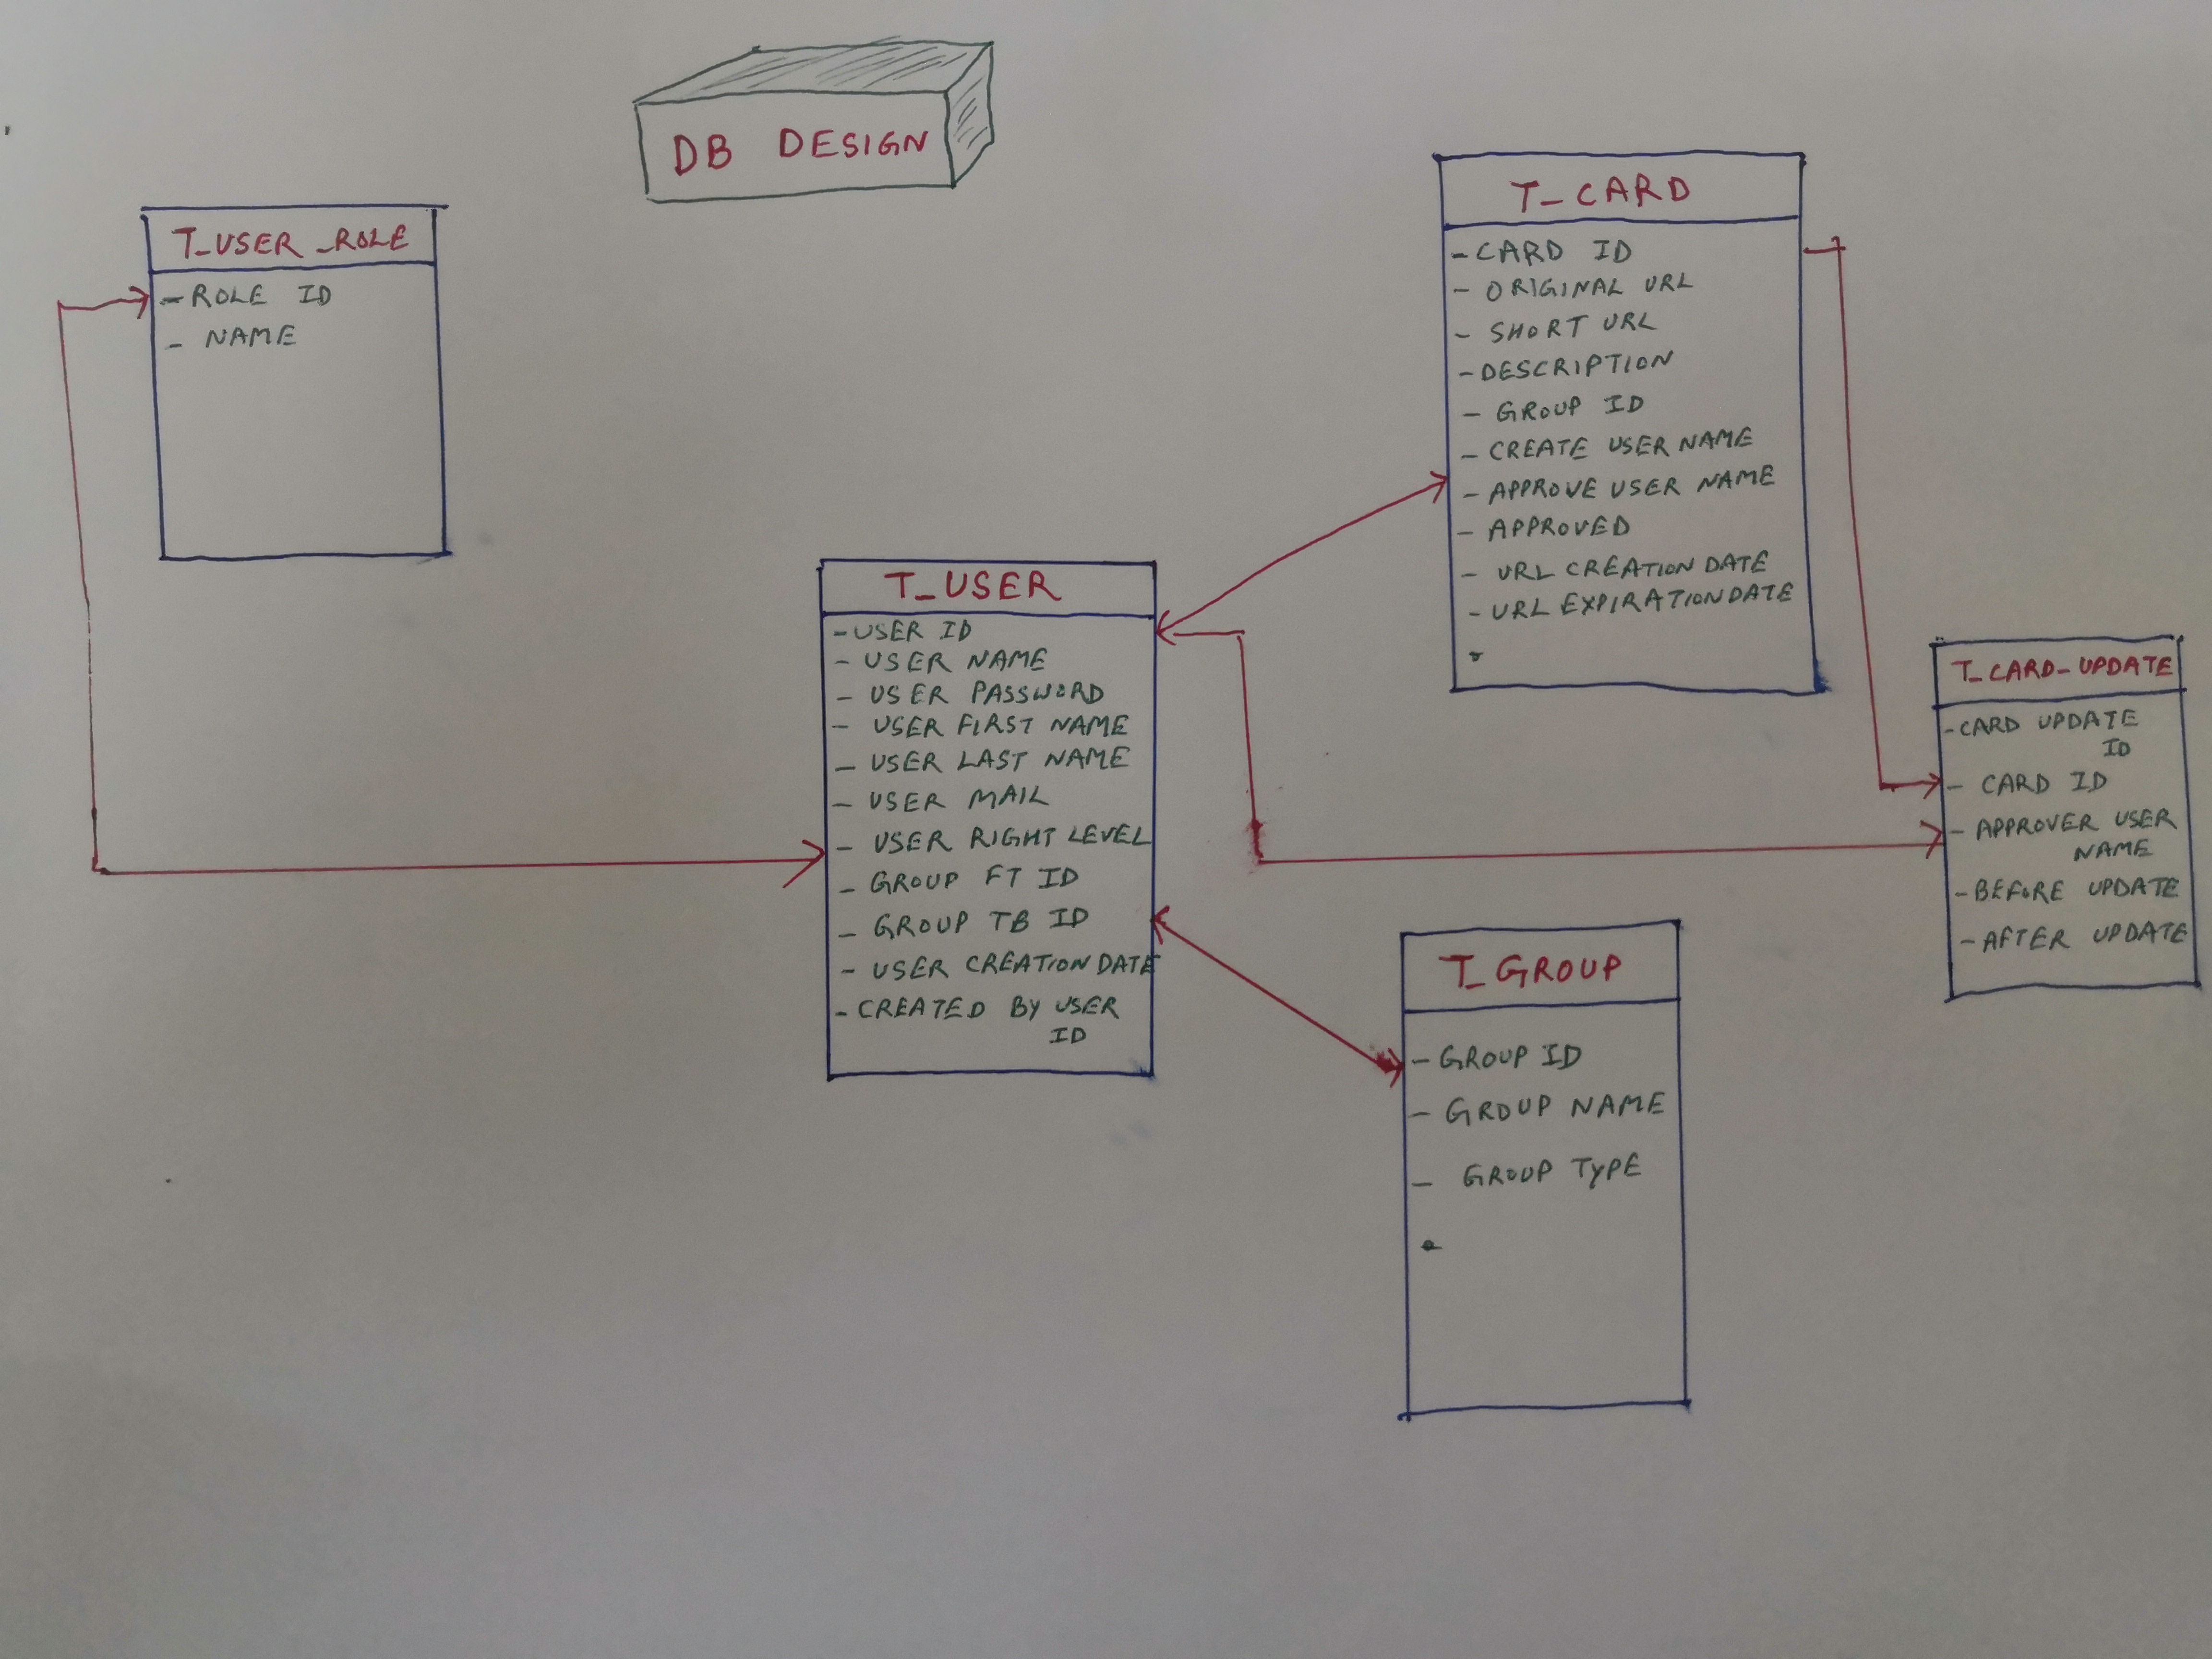 DB DESIGN
T_USER_ROLE
- ROLE ID
- NAME
T_CARD
- CARD ID
- ORIGINAL URL
- SHORT URL
- DESCRIPTION
- GROUP ID
- CREATE USER NAME
- APPROVE USER NAME
- APPROVED
- URL CREATION DATE
- URL EXPIRATION DATE
T_USER
- USER ID
- USER NAME
- USER PASSWORD
- USER FIRST NAME
- USER LAST NAME
- USER MAIL
- USER RIGHT LEVEL
- GROUP FT ID
- GROUP TB ID
- USER CREATION DATE
- CREATED BY USER
ID
T_CARD_UPDATE
- CARD UPDATE
ID
- CARD ID
- APPROVER USER
NAME
- BEFORE UPDATE
- AFTER UPDATE
T_GROUP
- GROUP ID
- GROUP NAME
- GROUP TYPE